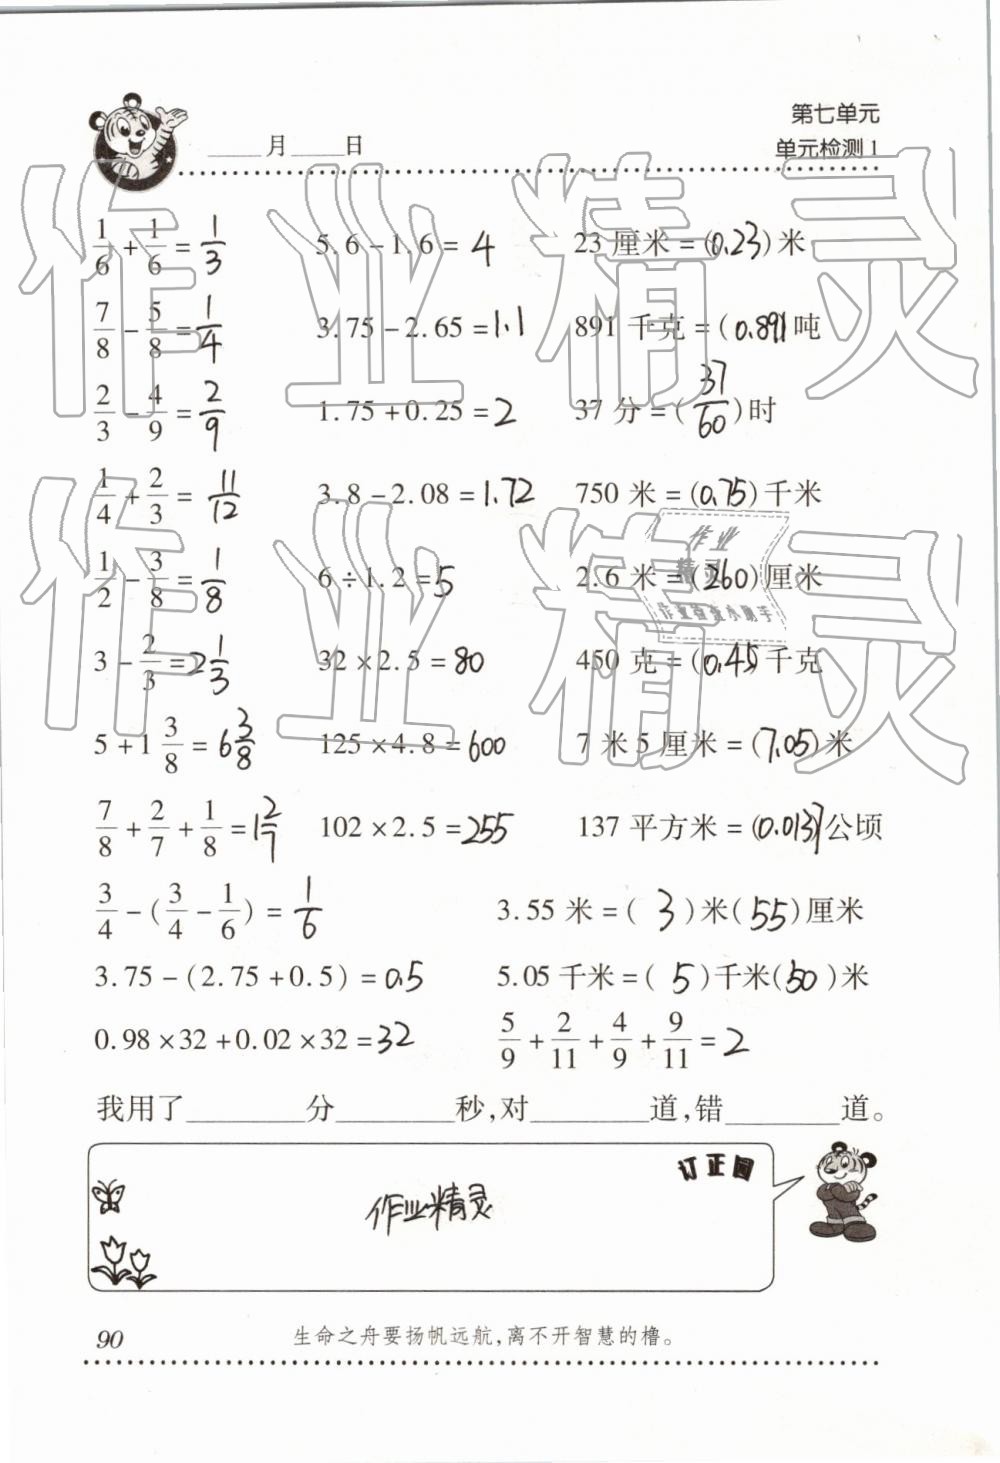 第七单元
____月____日 单元检测1
1/6+1/6=1/3 5.6-1.6=4 23厘米=(0.23)米
7/8-5/8=1/4 3.75-2.65=1.1 891千克=(0.891吨
2/3-4/9=2/9 1.75+0.25=2 37分=(37/60)时
1/4+2/3=11/12 3.8-2.08=1.72 750米=(0.75)千米
1/2-3/8=1/8 6÷1.2=5 2.6米=(260)厘米
3-2/3=2 1/3 32×2.5=80 450克=(0.45)千克
5+1 3/8=6 3/8 125×4.8=600 7米5厘米=(7.05)米
7/8+2/7+1/8=1 2/7 102×2.5=255 137平方米=(0.0137)公顷
3/4-(3/4-1/6)=1/6 3.55米=(3)米(55)厘米
3.75-(2.75+0.5)=0.5 5.05千米=(5)千米(50)米
0.98×32+0.02×32=32 5/9+2/11+4/9+9/11=2
我用了________分________秒,对________道,错________道。
订正园
作业精灵
90 生命之舟要扬帆远航,离不开智慧的橹。
作业精灵
作业精灵
作业
精灵
作业检查小助手